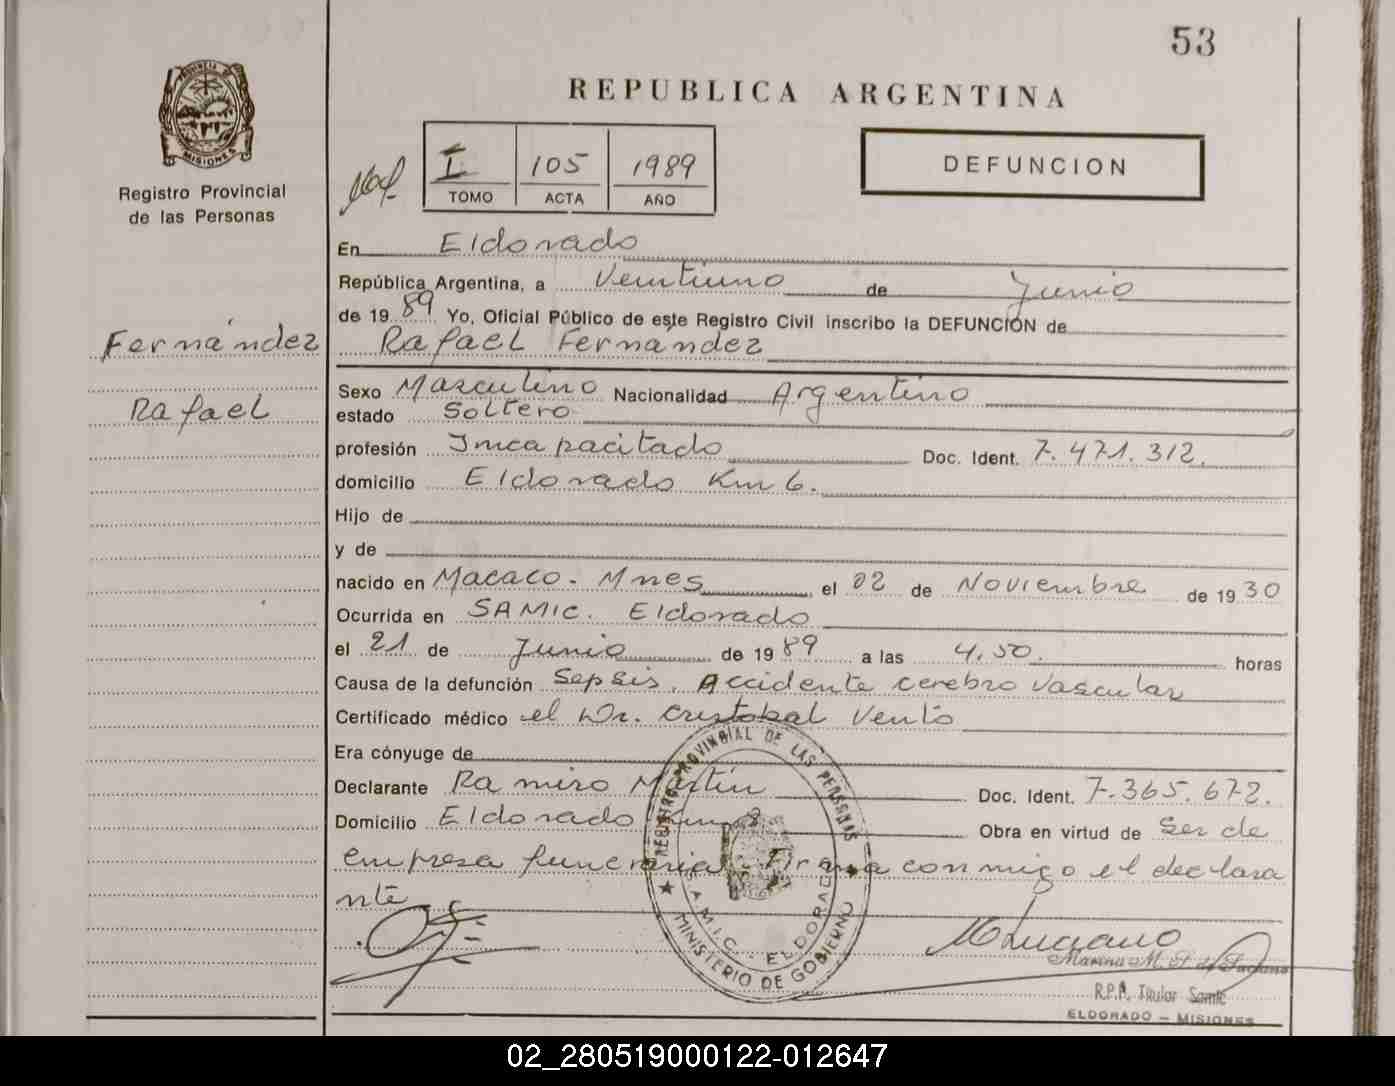 53
REPUBLICA ARGENTINA
PROVINCIA DE
MISIONES
Registro Provincial
de las Personas
I 105 1989
TOMO ACTA AÑO
DEFUNCION
En Eldorado
República Argentina, a Veintiuno de Junio
de 19 89 Yo, Oficial Público de este Registro Civil inscribo la DEFUNCION de
Fernández
Rafael Fernández
Rafael
Sexo Masculino Nacionalidad Argentino
estado Soltero
profesión Incapacitado Doc. Ident. 7.471.312.
domicilio Eldorado Km 6.
Hijo de
y de
nacido en Macaco. Mnes el 02 de Noviembre de 19 30
Ocurrida en SAMIC. Eldorado
el 21 de Junio de 19 89 a las 4,50. horas
Causa de la defunción Sepsis. Accidente cerebro vascular
Certificado médico el Dr. Cristobal Vento
Era cónyuge de
Declarante Ramiro Martín Doc. Ident. 7.365.672.
Domicilio Eldorado Km 8 Obra en virtud de Ser de
empresa funeraria. Firma conmigo el declara
nte
REGISTRO PROVINCIAL DE LAS PERSONAS
S.A.M.I.C. - ELDORADO
MINISTERIO DE GOBIERNO
Marina M.
R.P.P. Titular Samic
ELDORADO - MISIONES
02_280519000122-012647